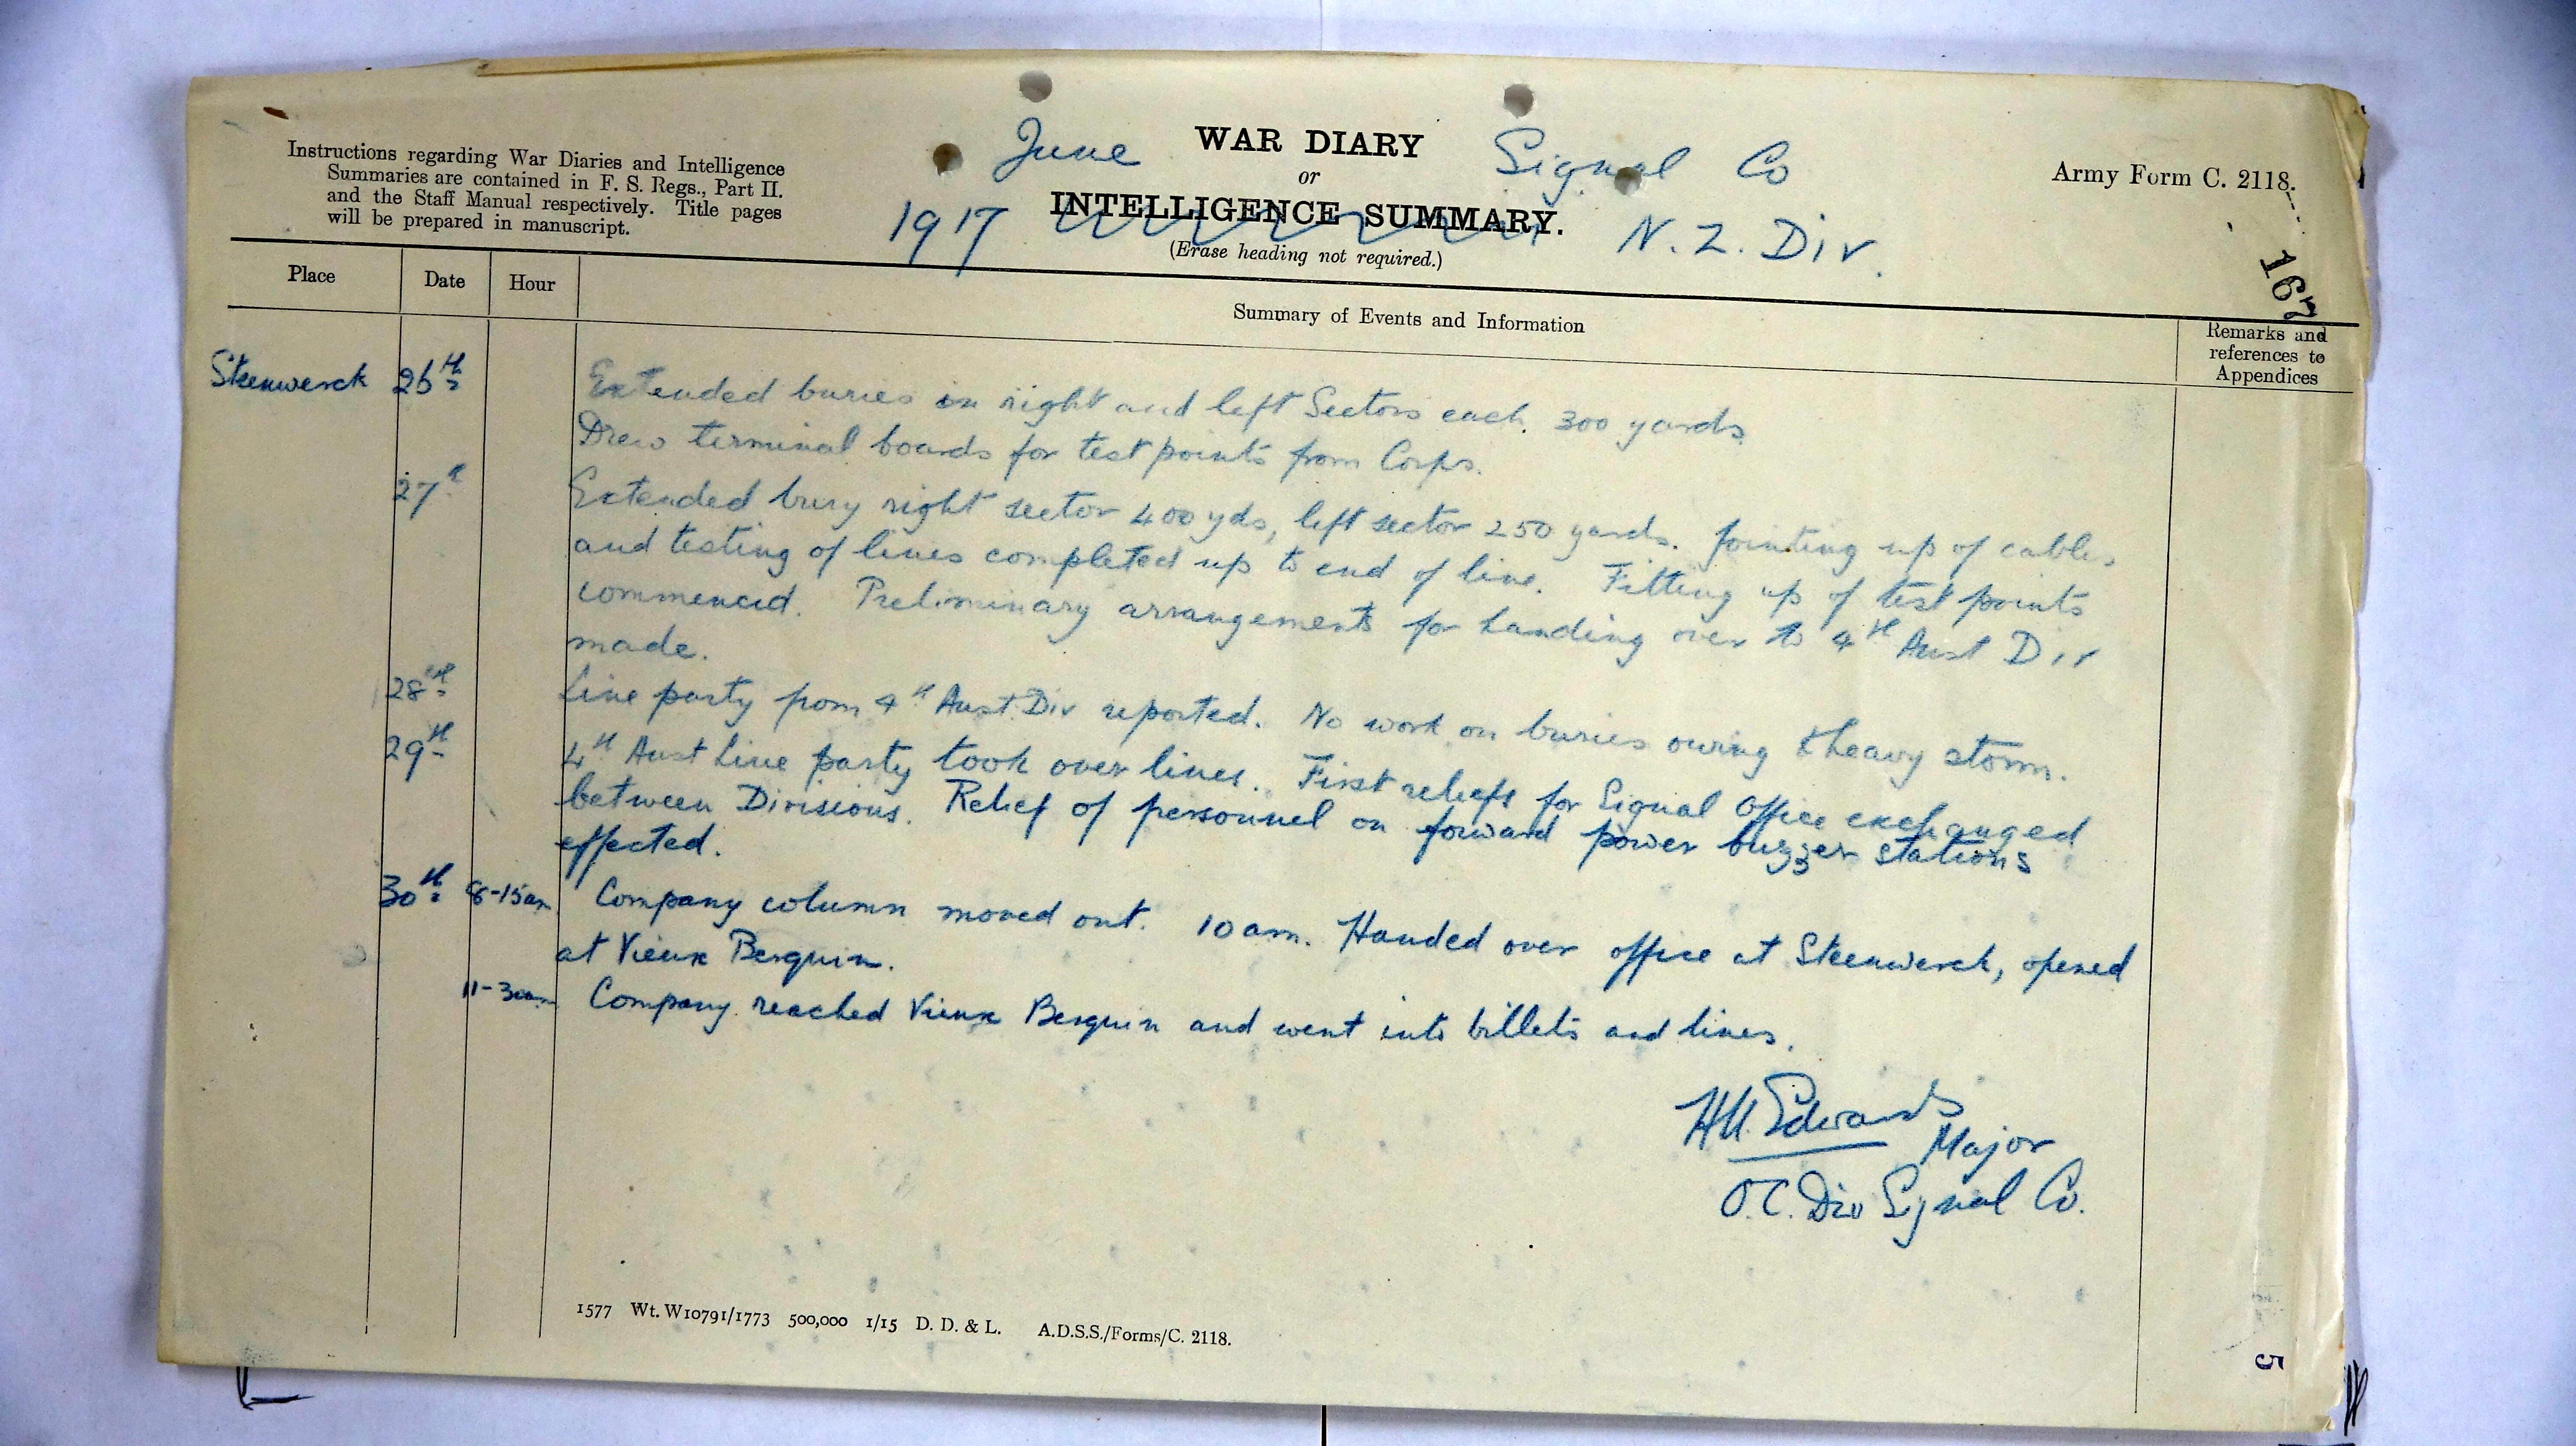 Instructions regarding War Diaries and Intelligence
Summaries are contained in F. S. Regs., Part II.
and the Staff Manual respectively. Title pages
will be prepared in manuscript.
June
1917
WAR DIARY
or
INTELLIGENCE SUMMARY.
(Erase heading not required.)
Signal Co
N. Z. Div.
Army Form C. 2118.
167
Place
Date
Hour
Summary of Events and Information
Remarks and
references to
Appendices
Steenwerck 26th Extended buries in right and left Sectors each 300 yards.
Drew terminal boards for test points from Corps.
27th Extended bury right sector 400 yds, left sector 250 yards. Jointing up of cables
and testing of lines completed up to end of line. Fitting up of test points
commenced. Preliminary arrangements for handing over to 4th Aust Div
made.
28th Line party from 4th Aust Div reported. No work on buries owing to heavy storm.
29th 4th Aust Line party took over lines. First reliefs for Signal Office exchanged
between Divisions. Relief of personnel on forward power buzzer stations
effected.
30th 8-15am Company column moved out. 10 am. Handed over office at Steenwerck, opened
at Vieux Berquin.
11-30am Company reached Vieux Berquin and went into billets and lines.
Edwards
Major
O.C. Div Signal Co.
1577 Wt. W10791/1773 500,000 1/15 D. D. & L. A.D.S.S./Forms/C. 2118.
5